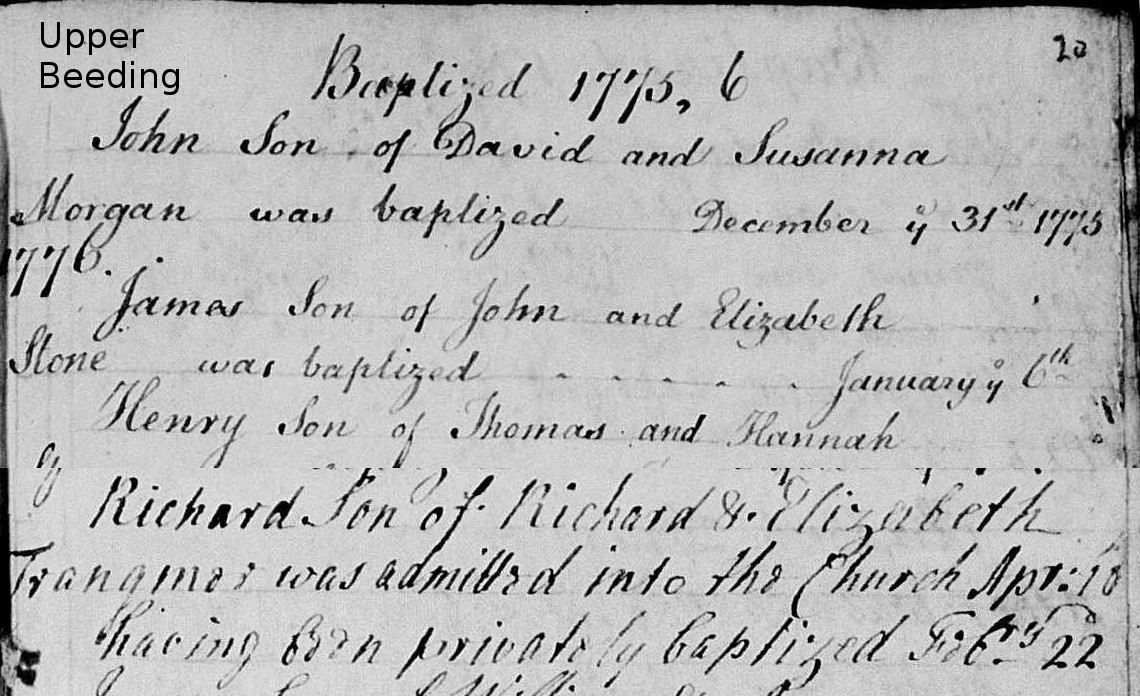 Upper
Beeding
20
Baptized 1775, 6
John Son of David and Susanna
Morgan was baptized December ẏ 31st 1775
1776.
James Son of John and Elizabeth
Stone was baptized - - - - - January ẏ 6th
Henry Son of Thomas and Hannah
Richard Son of Richard & Elizabeth
Trangmer was admitted into the Church Apr: 18
having been privately baptized Febry 22